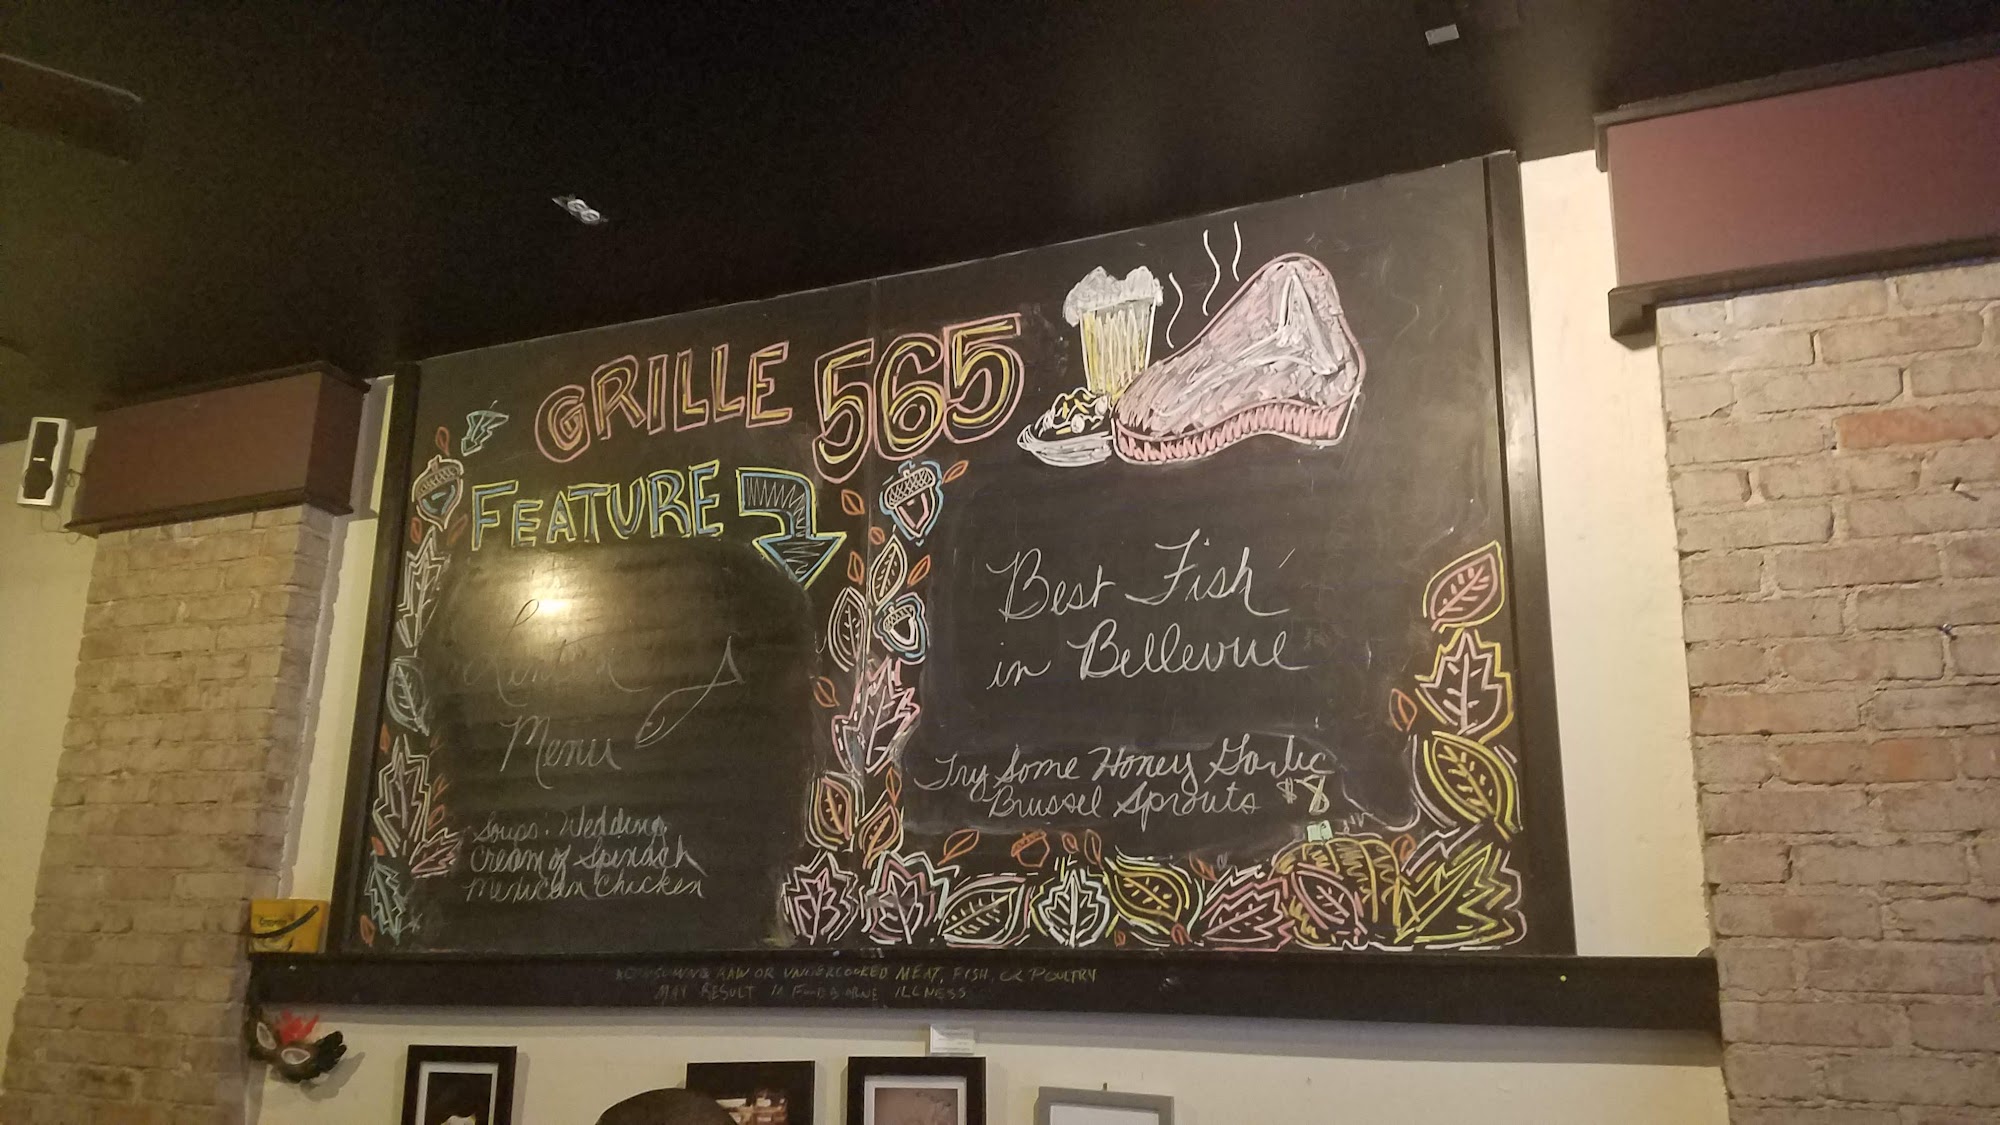 GRILLE 565
FEATURE
Lenten
Menu
Soups: Wedding
Cream of Spinach
Mexican Chicken
Best Fish
in Bellevue
Try Some Honey Garlic
Brussel Sprouts $8
CONSUMING RAW OR UNDERCOOKED MEAT, FISH, OR POULTRY
MAY RESULT IN FOODBORNE ILLNESS